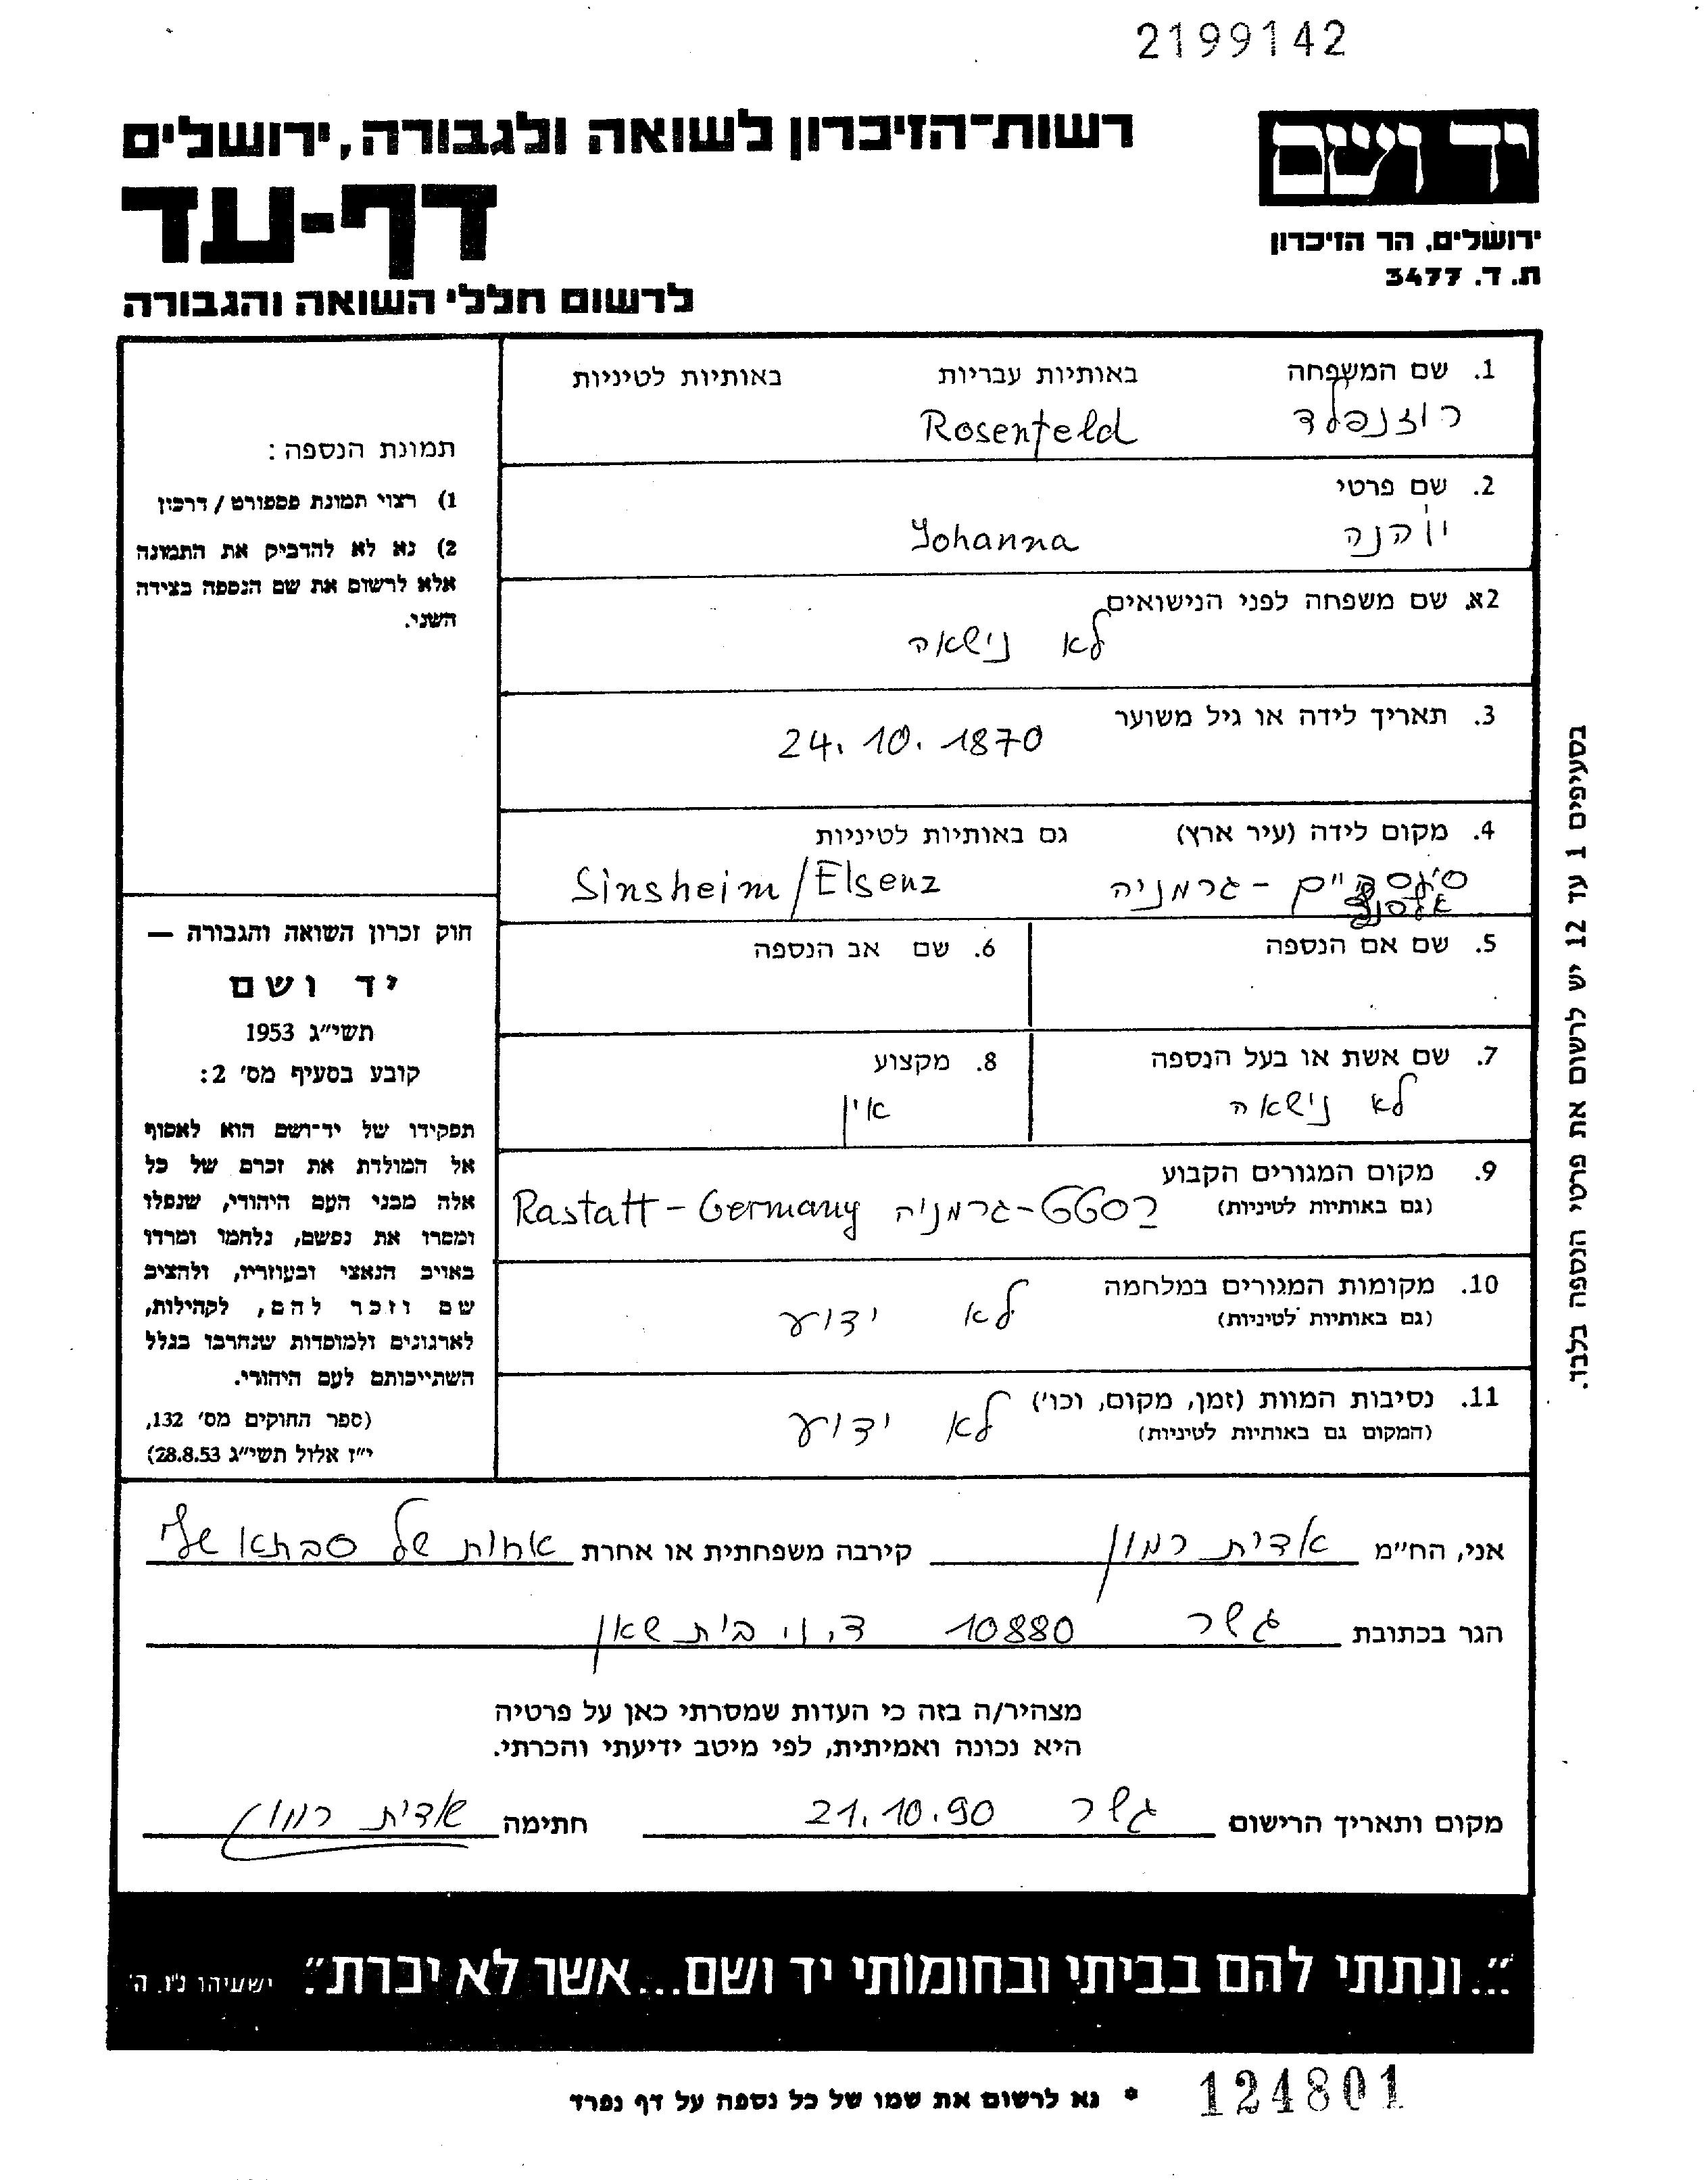 2199142
יד ושם
ירושלים, הר הזיכרון
ת. ד. 3477
רשות-הזיכרון לשואה ולגבורה, ירושלים
דף-עד
לרשום חללי השואה והגבורה
1. שם המשפחה באותיות עבריות באותיות לטיניות
רוזנפלד Rosenfeld
2. שם פרטי
יוהנה Johanna
2א. שם משפחה לפני הנישואים
לא נישאה
3. תאריך לידה או גיל משוער
24.10.1870
4. מקום לידה (עיר ארץ) גם באותיות לטיניות
סינסהיים - גרמניה Sinsheim/Elsenz
אלסנץ
5. שם אם הנספה 6. שם אב הנספה
7. שם אשת או בעל הנספה 8. מקצוע
לא נישאה אין
9. מקום המגורים הקבוע
(גם באותיות לטיניות) רסטט-גרמניה Rastatt - Germany
10. מקומות המגורים במלחמה
(גם באותיות לטיניות) לא ידוע
11. נסיבות המוות (זמן, מקום, וכו')
(המקום גם באותיות לטיניות) לא ידוע
תמונת הנספה:
1) רצוי תמונת פספורט / דרכון
2) נא לא להדביק את התמונה
אלא לרשום את שם הנספה בצידה
השני.
חוק זכרון השואה והגבורה —
יד ושם
תשי"ג 1953
קובע בסעיף מס' 2:
תפקידו של יד-ושם הוא לאסוף
אל המולדת את זכרם של כל
אלה מבני העם היהודי, שנפלו
ומסרו את נפשם, נלחמו ומרדו
באויב הנאצי ובעוזריו, ולהציב
שם וזכר להם, לקהילות,
לארגונים ולמוסדות שנחרבו בגלל
השתייכותם לעם היהודי.
(ספר החוקים מס' 132,
י"ז אלול תשי"ג 28.8.53)
בסעיפים 1 עד 12 יש לרשום את פרטי הנספה בלבד.
אני, הח"מ אדית רמון קירבה משפחתית או אחרת אחות של סבתא שלי
הגר בכתובת גשר 10880 ד.נ. בית שאן
מצהיר/ה בזה כי העדות שמסרתי כאן על פרטיה
היא נכונה ואמיתית, לפי מיטב ידיעתי והכרתי.
מקום ותאריך הרישום גשר 21.10.90 חתימה אדית רמון
"...ונתתי להם בביתי ובחומותי יד ושם...אשר לא יכרת." ישעיהו נ"ו. ה'
* נא לרשום את שמו של כל נספה על דף נפרד
124801